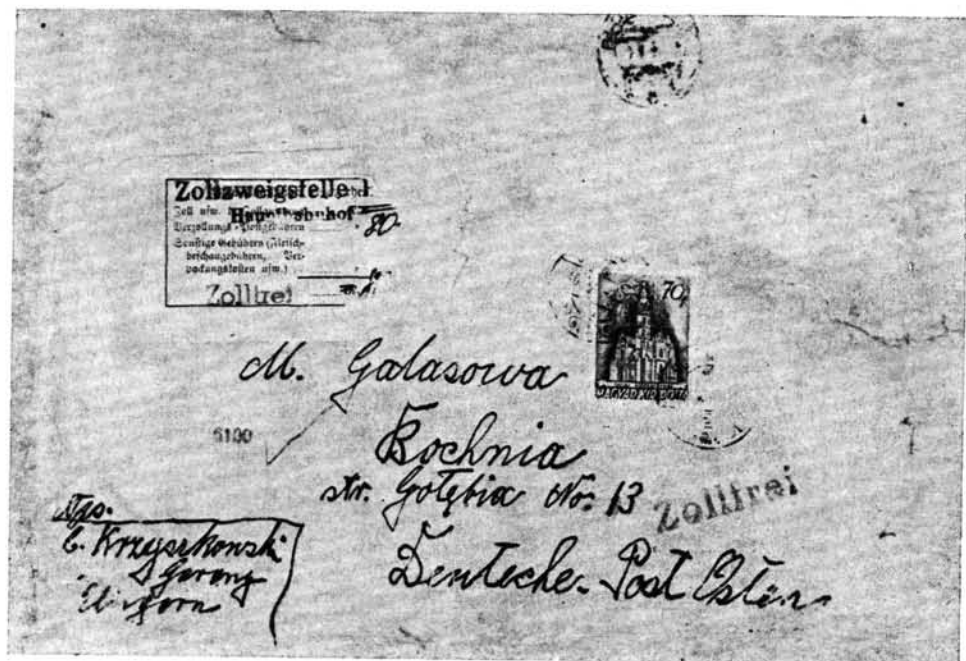 Zollzweigstelle
Hauptbahnhof
Zoll usw.
Verzollungs-Postgebühren
80
Sonstige Gebühren (Fleisch-
beschaugebühren, Ver-
packungskosten usw.)
Zollfrei
70
M. Galasowa
6100
Bochnia
str. Gołębia No. 13
Zollfrei
Deutsche Post Osten
Krzyszkowski
Garany
Ungarn